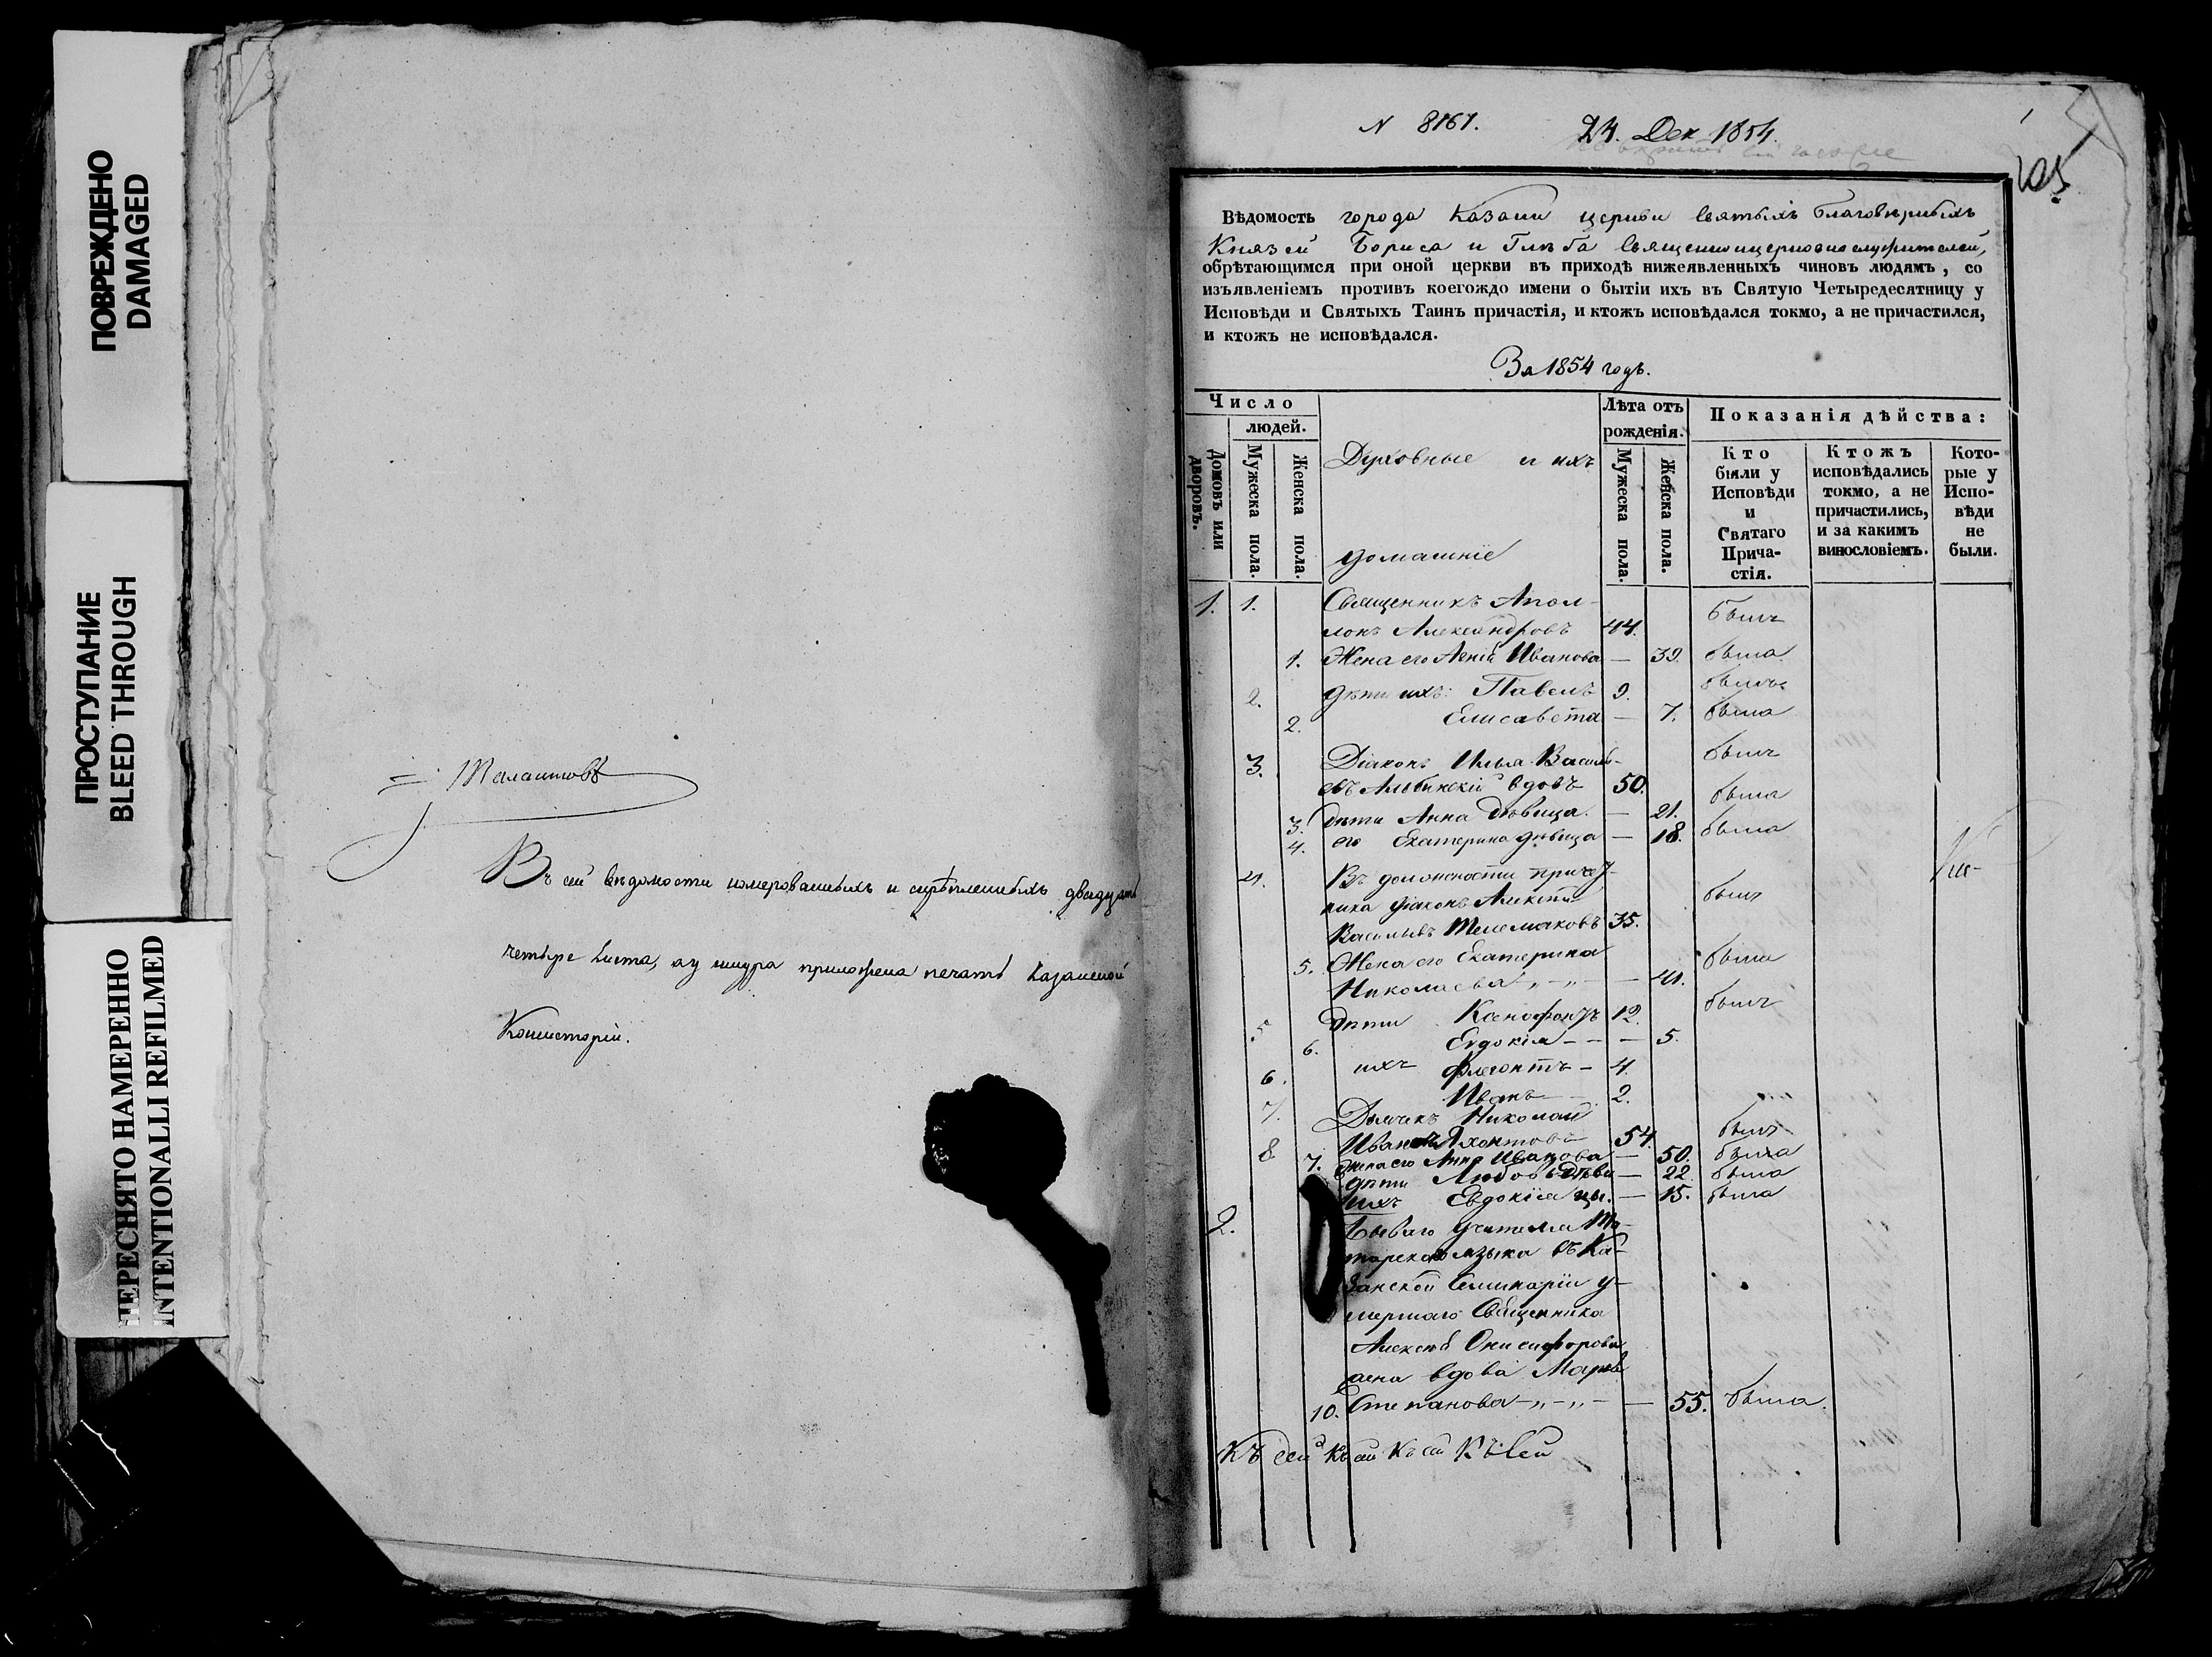 ПОВРЕЖДЕНО
DAMAGED
ПРОСТУПАНИЕ
BLEED THROUGH
ПЕРЕСНЯТО НАМЕРЕННО
INTENTIONALLI REFILMED
Въ сей вѣдомости номерованныхъ и скрѣпленныхъ двадцать
четыре листа, а у шнура приложена печать Казанской
Консисторіи.
N 8161. 24. Дек 1854.
Вѣдомость города Казани церкви Святыхъ благовѣрныхъ
Князей Бориса и Глѣба священноцерковнослужителей,
обрѣтающимся при оной церкви въ приходѣ нижеявленныхъ чиновъ людямъ, со
изъявленіемъ противъ коегождо имени о бытіи ихъ въ Святую Четыредесятницу у
Исповѣди и Святыхъ Таинъ причастія, и ктожъ исповѣдался токмо, а не причастился,
и ктожъ не исповѣдался.
За 1854 годъ.
Число
людей.
Домовъ или дворовъ.
Мужеска пола.
Женска пола.
Духовные и ихъ
домашніе
Лѣта отъ
рожденія.
Мужеска пола.
Женска пола.
Показанія дѣйства:
Кто
были у
Исповѣди
и
Святаго
Прича-
стія.
Ктожъ
исповѣдались
токмо, а не
причастились,
и за какимъ
винословіемъ.
Кото-
рые у
Испо-
вѣди
не
были.
1. 1. Священникъ Апол-
лонъ Александровъ 44. былъ
1. Жена его Ивановa — 39. была
2. дѣти ихъ: Павелъ 9. былъ
2. Елисавета — 7. была
3. Діаконъ Илья Василь-
евъ вдовъ 50. былъ
3. дѣти Анна дѣвица — 21. была
4. его Екатерина дѣвица — 18. была
4. Въ должности причет-
ника діаконъ Алексѣй
Васильевъ Телемаковъ 35. былъ
5. Жена его Екатерина
Николаева — 41. была
5 дѣти Ксенофонтъ 12. былъ
6. Евдокія — 5.
6. ихъ Флегонтъ — 4.
7. Иванъ — 2.
8 Дьячекъ Николай
Ивановъ Яхонтовъ 54. былъ
7. Жена его Анна Иванова — 50. была
дѣти Любовь дѣви- — 22 была
ихъ Евдокіея цы. — 15. была
2. Бывшаго учителя Та-
тарскаго языка въ Ка-
занской Семинаріи у-
мершаго Священника
Алексѣя Онисифорова
жена вдова Марѳа
10. Степанова — 55. была.
Къ сей Къ сей Къ сей Къ сей